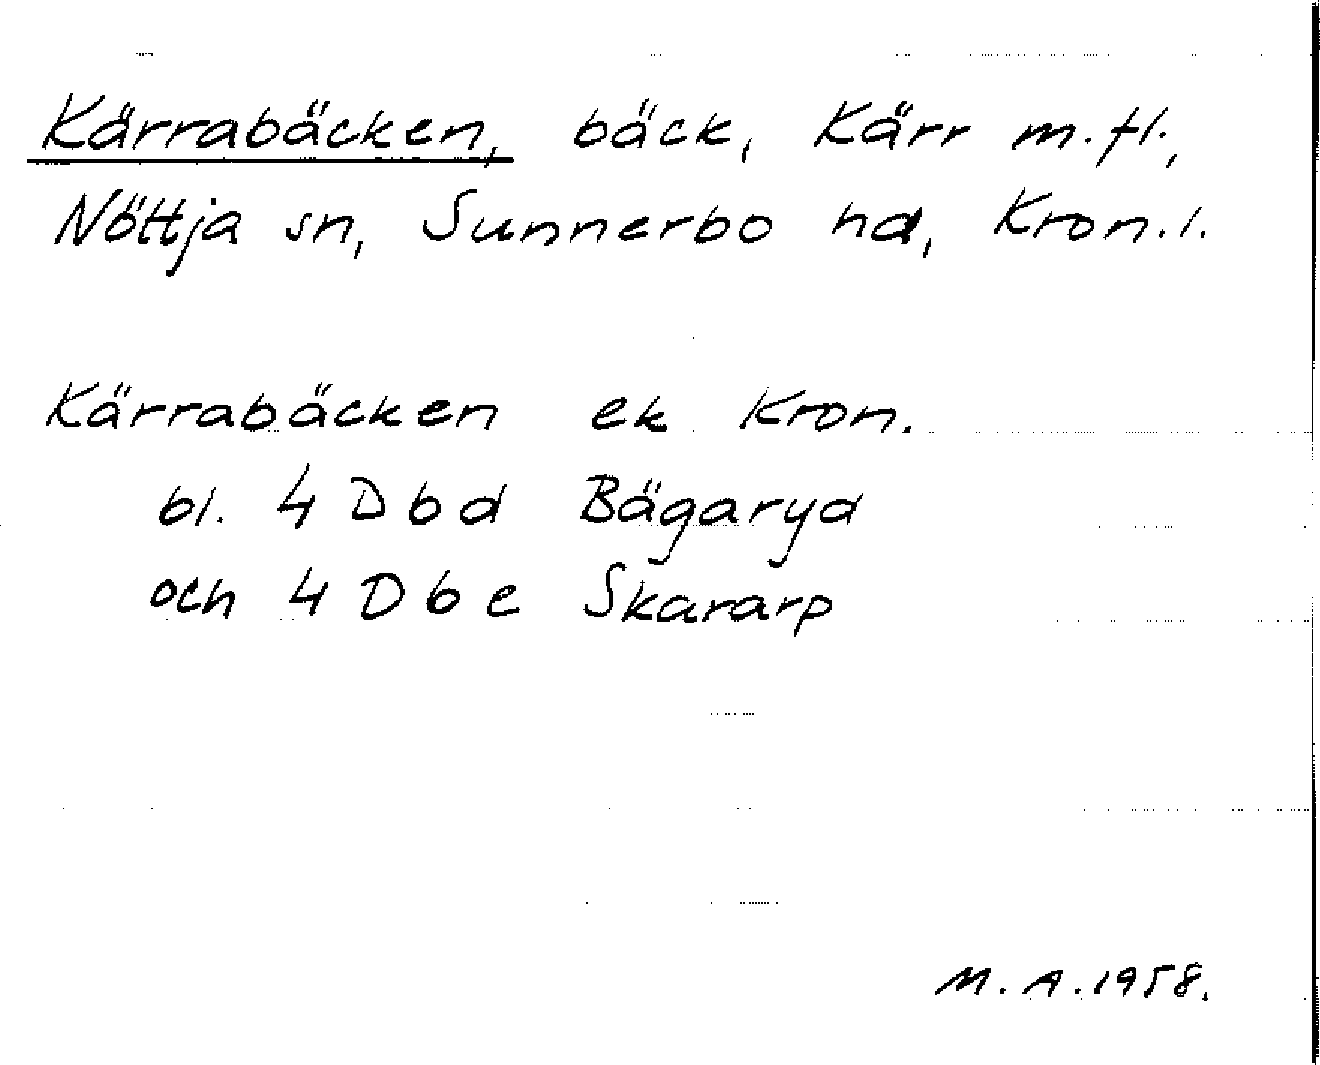 Kärrabäcken, bäck, Kärr m.fl.,
Nöttja sn, Sunnerbo hd, Kron.l.
Kärrabäcken ek Kron.
bl. 4 D b d Bägaryd
och 4 D b e Skararp
M.A.1958.